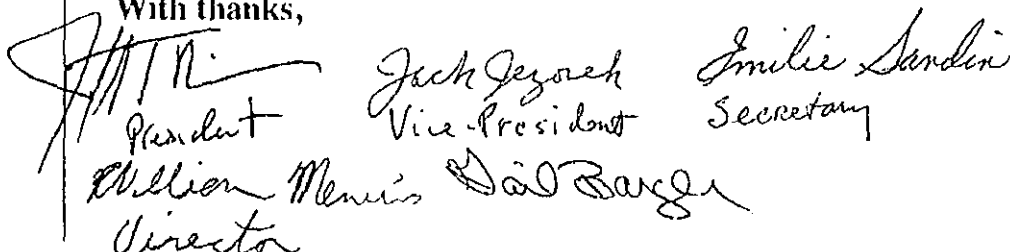 With thanks,
Jack Jezorek Emilie Sandin
President Vice-President Secretary
William Gail
Director